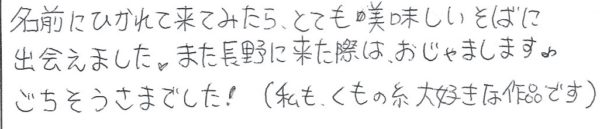 名前にひかれて来てみたら、とても美味しいそばに
出会えました。また長野に来た際は、おじゃまします♪
ごちそうさまでした！（私も、くもの糸大好きな作品です）